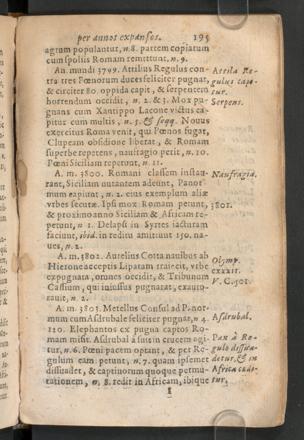 per annos expansos. 195
agrum populantur, n. 8. partem copiarum
cum spoliis Romam remittunt, n. 9.
An. mundi 3799. Attilius Regulus con-
tra tres Pœnorum duces feliciter pugnat,
& circiter 80. oppida capit, & serpentem
horrendum occidit, n. 2. & 3. Mox pu-
gnans cum Xantippo Lacone victus capitur cum multis, n. 5. & seqq. Novus
exercitus Roma venit, qui Pœnos fugat,
Clupeam obsidione liberat, & Romam
superbe repetens, naufragio perit, n. 10.
Pœni Siciliam repetunt, n. 11.
A. m. 3800. Romani classem instau-
rant, Siciliam nutantem adeunt, Panor-
mum capiunt, n. 2. eius exemplum aliæ
vrbes secutæ. Ipsi mox Romam petunt,
& proximo anno Siciliam & Africam re-
petunt, n 1. Delapsi in Syrtes iacturam
faciunt, ibid. in reditu amittunt 150. na-
ues, n. 2.
A. m. 3802. Aurelius Cotta nauibus ab
Hierone acceptis Liparam traiecit, vrbe
expugnata, omnes occidit, & Tribunum
Cassium, qui iniussus pugnarat, exaucto-
rauit, n. 2.
A. m. 3803. Metellus Consul ad Panor-
mum cum Asdrubale feliciter pugnat, n 4.
120. Elephantos ex pugna captos Ro-
mam misit. Asdrubal à suis in crucem agi-
tur, n. 6. Pœni pacem optant, & pet Re-
gulum eam petunt, n. 7. quam ipsemet
dissuadet, & captinorum quoque permu-
tationem, n. 8. redit in Africam, ibique
I
Attila Re-
gulus capi-
tur.
Serpens.
Naufragia.
3801.
Olymp.
cxxix.
V. C. 501.
Asdrubal.
Pax à Re-
gulo dissua-
detur, & in
Africa cædi-
tur,